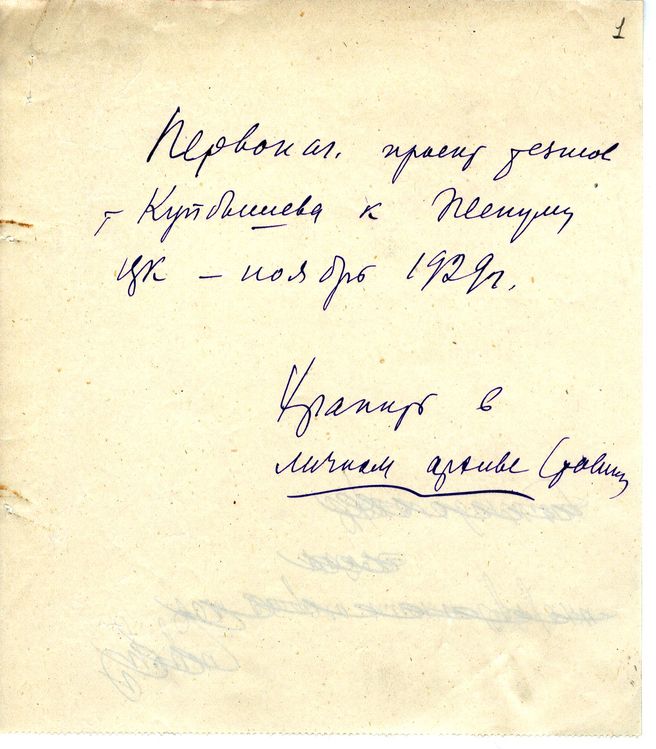 1
Первонач. проект тезисов
т Куйбышева к Пленуму
ЦК – ноябрь 1929г.
Хранить в
личном архиве